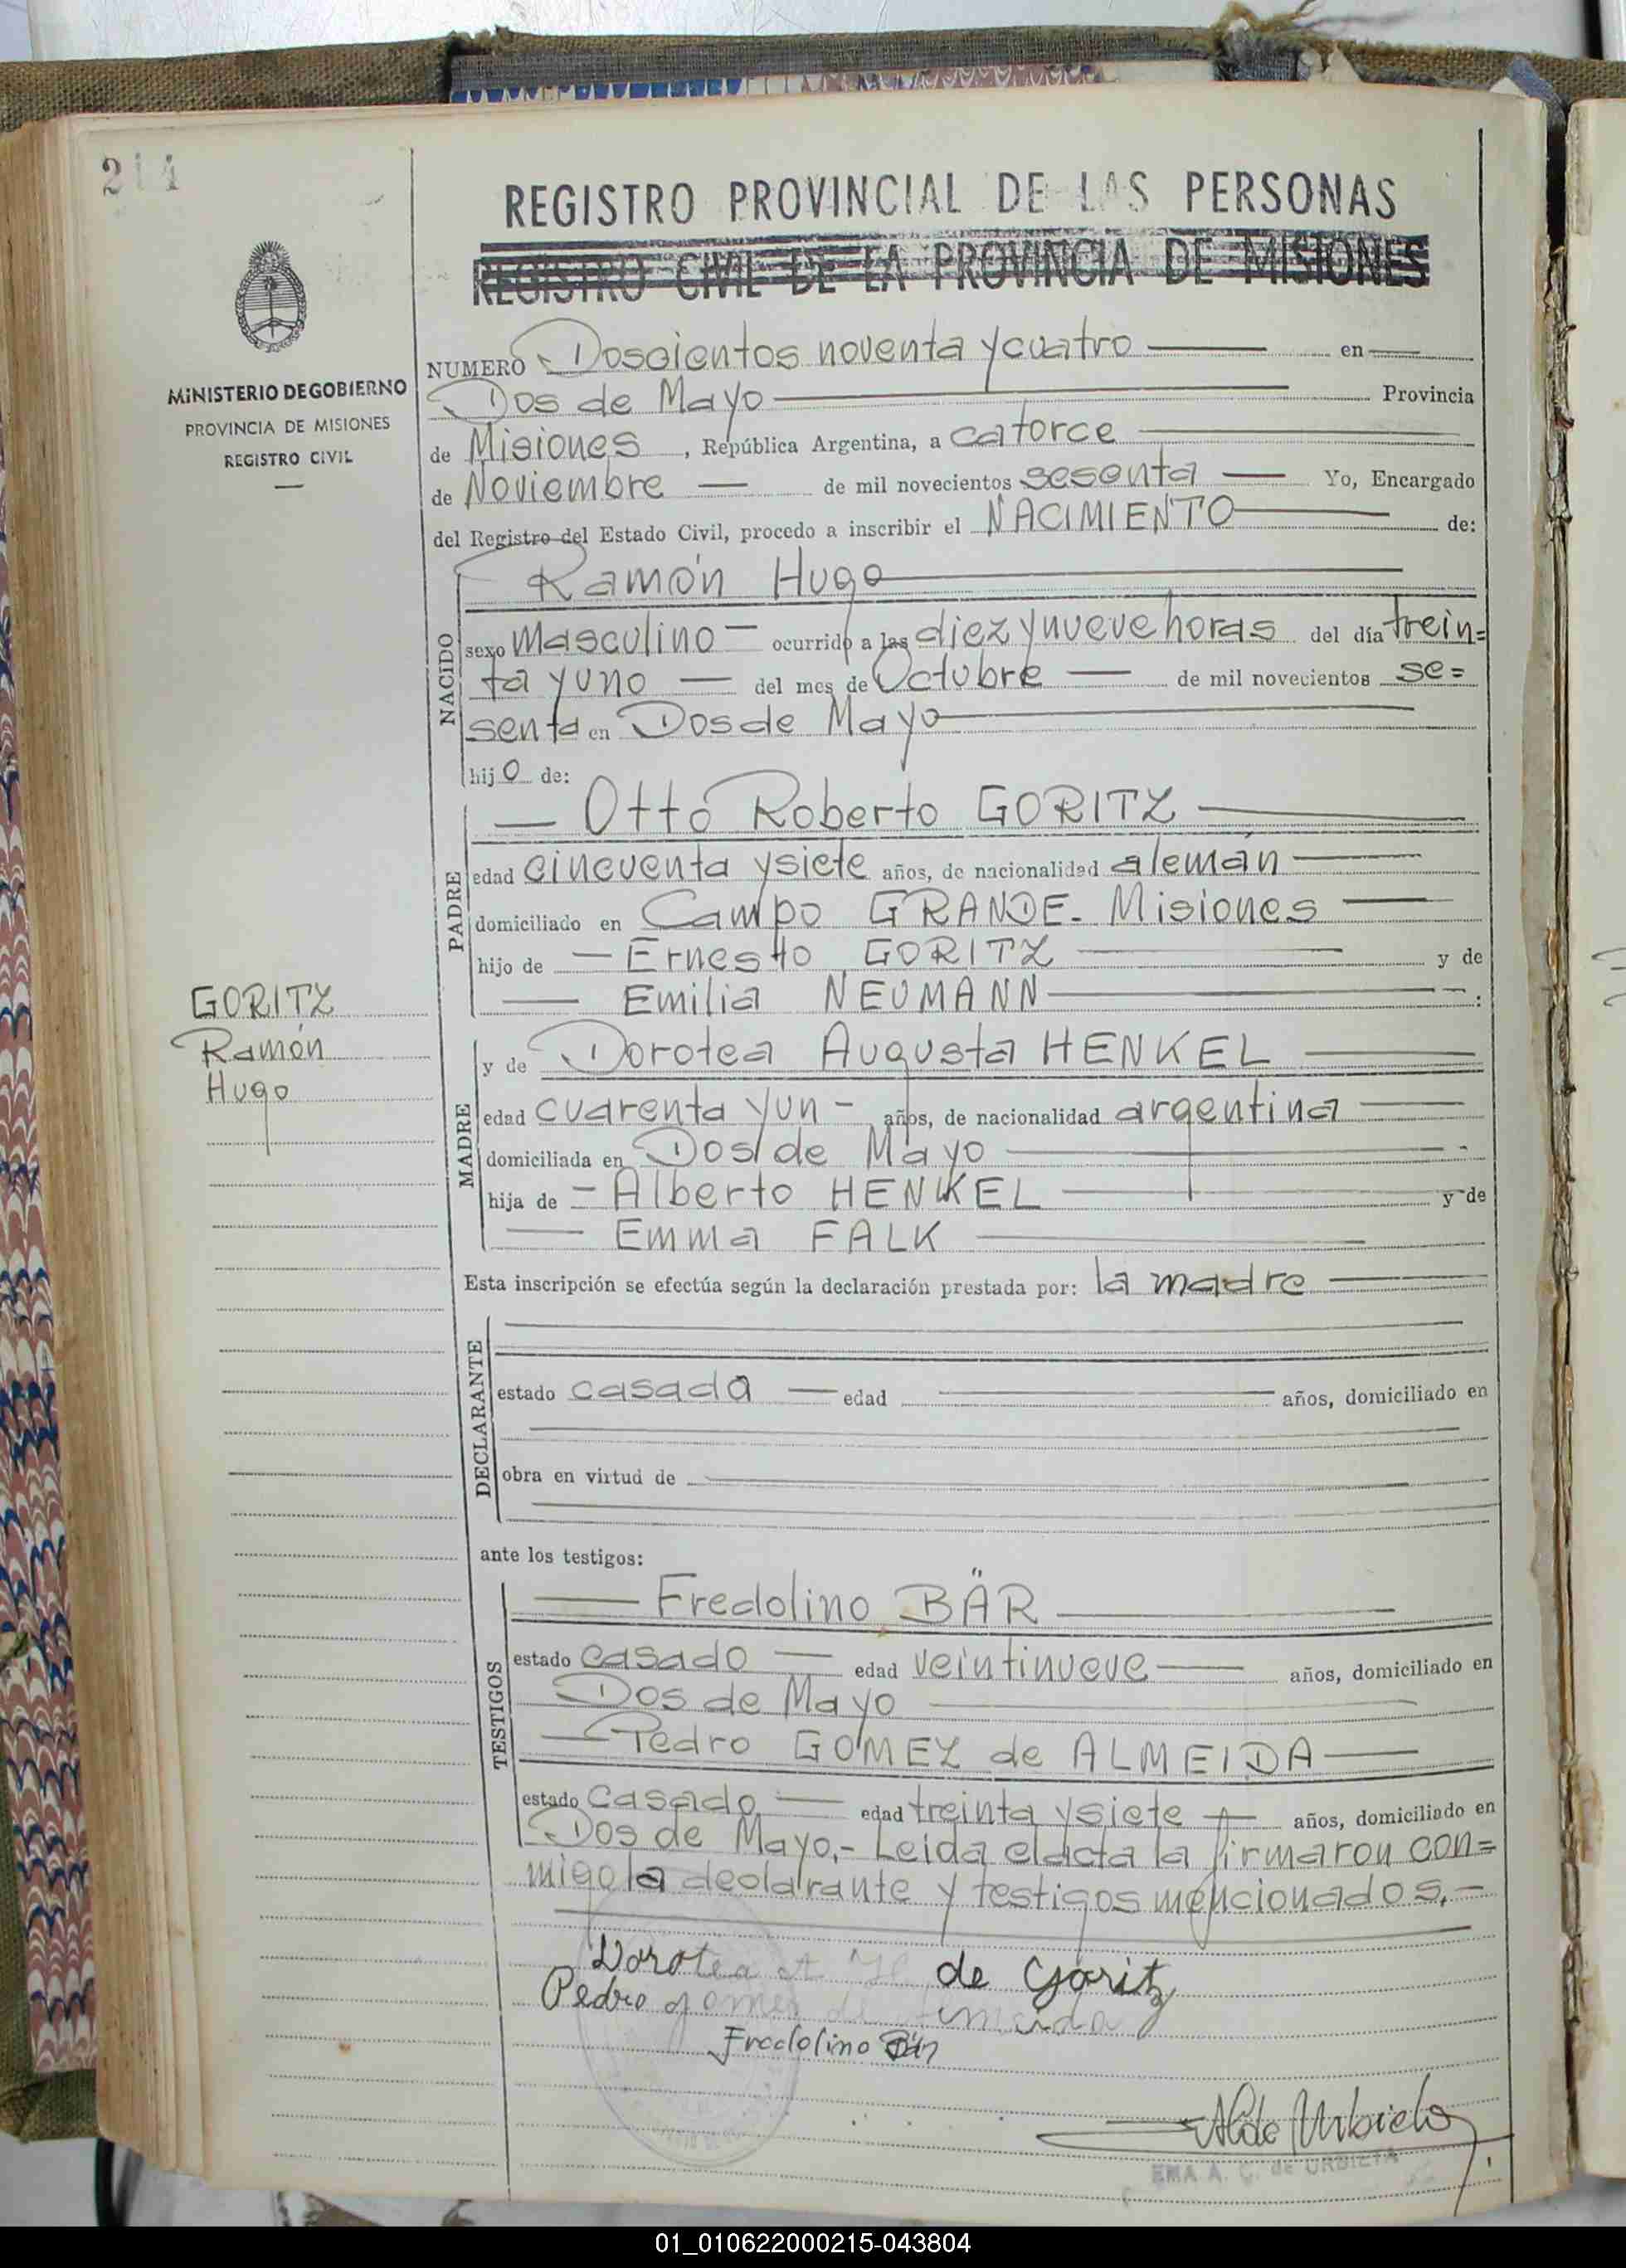 214
REGISTRO PROVINCIAL DE LAS PERSONAS
REGISTRO CIVIL DE LA PROVINCIA DE MISIONES
MINISTERIO DE GOBIERNO
PROVINCIA DE MISIONES
REGISTRO CIVIL
NUMERO Doscientos noventa y cuatro en
Dos de Mayo Provincia
de Misiones, República Argentina, a catorce
de Noviembre de mil novecientos sesenta Yo, Encargado
del Registro del Estado Civil, procedo a inscribir el NACIMIENTO de:
NACIDO
Ramón Hugo
sexo Masculino ocurrido a las diez y nueve horas del día trein=
ta y uno del mes de Octubre de mil novecientos se=
senta en Dos de Mayo
hijo de:
PADRE
Otto Roberto GORITZ
edad cincuenta y siete años, de nacionalidad alemán
domiciliado en Campo GRANDE- Misiones
hijo de Ernesto GORITZ y de
Emilia NEUMANN
GORITZ
Ramón
Hugo
MADRE
y de Dorotea Augusta HENKEL
edad cuarenta y un años, de nacionalidad argentina
domiciliada en Dos de Mayo
hija de Alberto HENKEL y de
Emma FALK
Esta inscripción se efectúa según la declaración prestada por: la madre
DECLARANTE
estado casada edad años, domiciliado en
obra en virtud de
ante los testigos:
TESTIGOS
Fredolino BÄR
estado casado edad veintinueve años, domiciliado en
Dos de Mayo
Pedro GOMEZ de ALMEIDA
estado casado edad treinta y siete años, domiciliado en
Dos de Mayo.- Leida el acta la firmaron con=
migo la declarante y testigos mencionados.-
Dorotea A. de Goritz
Pedro gomes de Almeida
Fredolino Bär
EMA A. C. de URBIETA
01_010622000215-043804